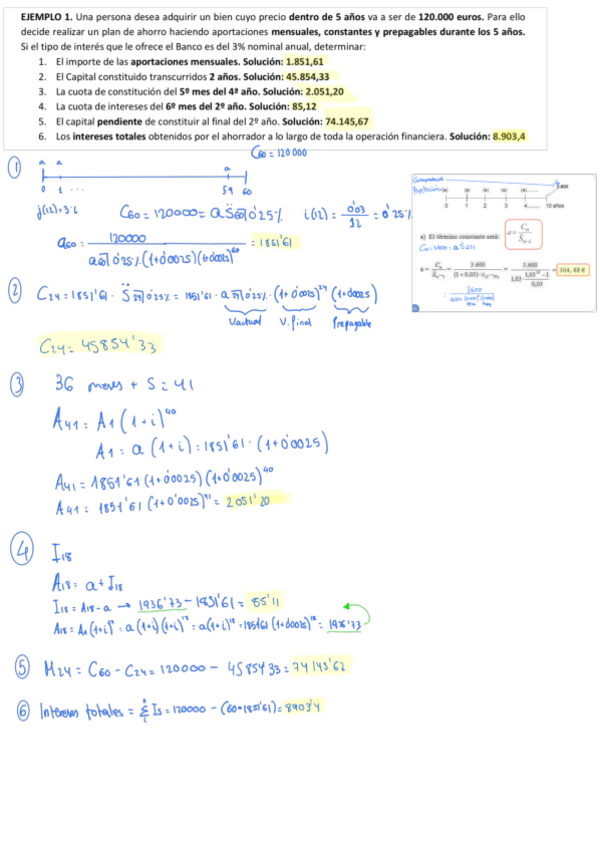 EJEMPLO 1. Una persona desea adquirir un bien cuyo precio dentro de 5 años va a ser de 120.000 euros. Para ello
decide realizar un plan de ahorro haciendo aportaciones mensuales, constantes y prepagables durante los 5 años.
Si el tipo de interés que le ofrece el Banco es del 3% nominal anual, determinar:
1. El importe de las aportaciones mensuales. Solución: 1.851,61
2. El Capital constituido transcurridos 2 años. Solución: 45.854,33
3. La cuota de constitución del 5º mes del 4º año. Solución: 2.051,20
4. La cuota de intereses del 6º mes del 2º año. Solución: 85,12
5. El capital pendiente de constituir al final del 2º año. Solución: 74.145,67
6. Los intereses totales obtenidos por el ahorrador a lo largo de toda la operación financiera. Solución: 8.903,4
C60 = 120000
1
a a a
0 1 ... 59 60
j(12)=3%
C60 = 120000 = a S̈60⌉0'25% i(12) = 0'03/12 = 0'25%
a60 = 120000 / a60⌉0'25%.(1+0'0025)(1+0'0025)^60 = 1851'61
3.600
0 1 2 3 4...... 10 años
a) El término constante será: a = Cn / S̈n⌉i
3.600 / 1,03 · (1,03^10 − 1)/0,03 = 304,88 €
2 C24 = 1851'61 · S̈24⌉0'25% = 1851'61 · a24⌉0'25% · (1+0'0025)^24 (1+0'0025)
V.actual V.final Prepagable
C24 = 45854'33
3 36 meses + 5 = 41
A41 = A1 (1+i)^40
A1 = a (1+i) = 1851'61 · (1+0'0025)
A41 = 1851'61 (1+0'0025) (1+0'0025)^40
A41 = 1851'61 (1+0'0025)^41 = 2051'20
4 I18
A18 = a + I18
I18 = A18 - a → 1936'73 - 1851'61 = 85'11
A18 = A1 (1+i)^17 = a (1+i) (1+i)^17 = a (1+i)^18 = 1851'61 (1+0'0025)^18 = 1936'73
5 M24 = C60 - C24 = 120000 - 45854'33 = 74145'67
6 Intereses totales = Σ Is = 120000 - (60 · 1851'61) = 8903'4